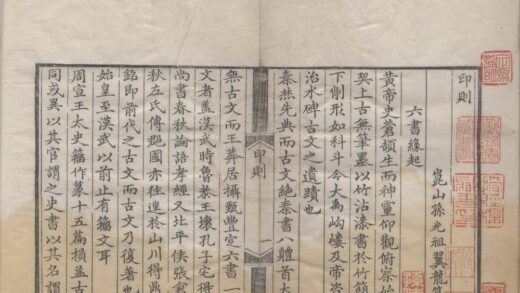 印則
崑山孫光祖翼龍
六書緣起
黃帝史蒼頡生而神靈仰觀俯察始
契上古無筆墨以竹沾漆書於竹簡
下削形如科斗今大禹岣嶁及帝
治水碑古文之遺蹟也
秦焚先典而古文絕秦書八體首大
印則
一
無古文而王莽居攝甄豐定六書一
文者盖漢武時魯恭王壞孔子宅得
尚書春秋論語孝經又北平侯張倉
秋左氏傳郡國亦往往於山川得鼎
銘即前代之古文而古文乃復著也
始皇至漢武以前止有籀文耳
周宣王太史籀作篆十五篇損益古
同或異以其官謂之史書以其名謂